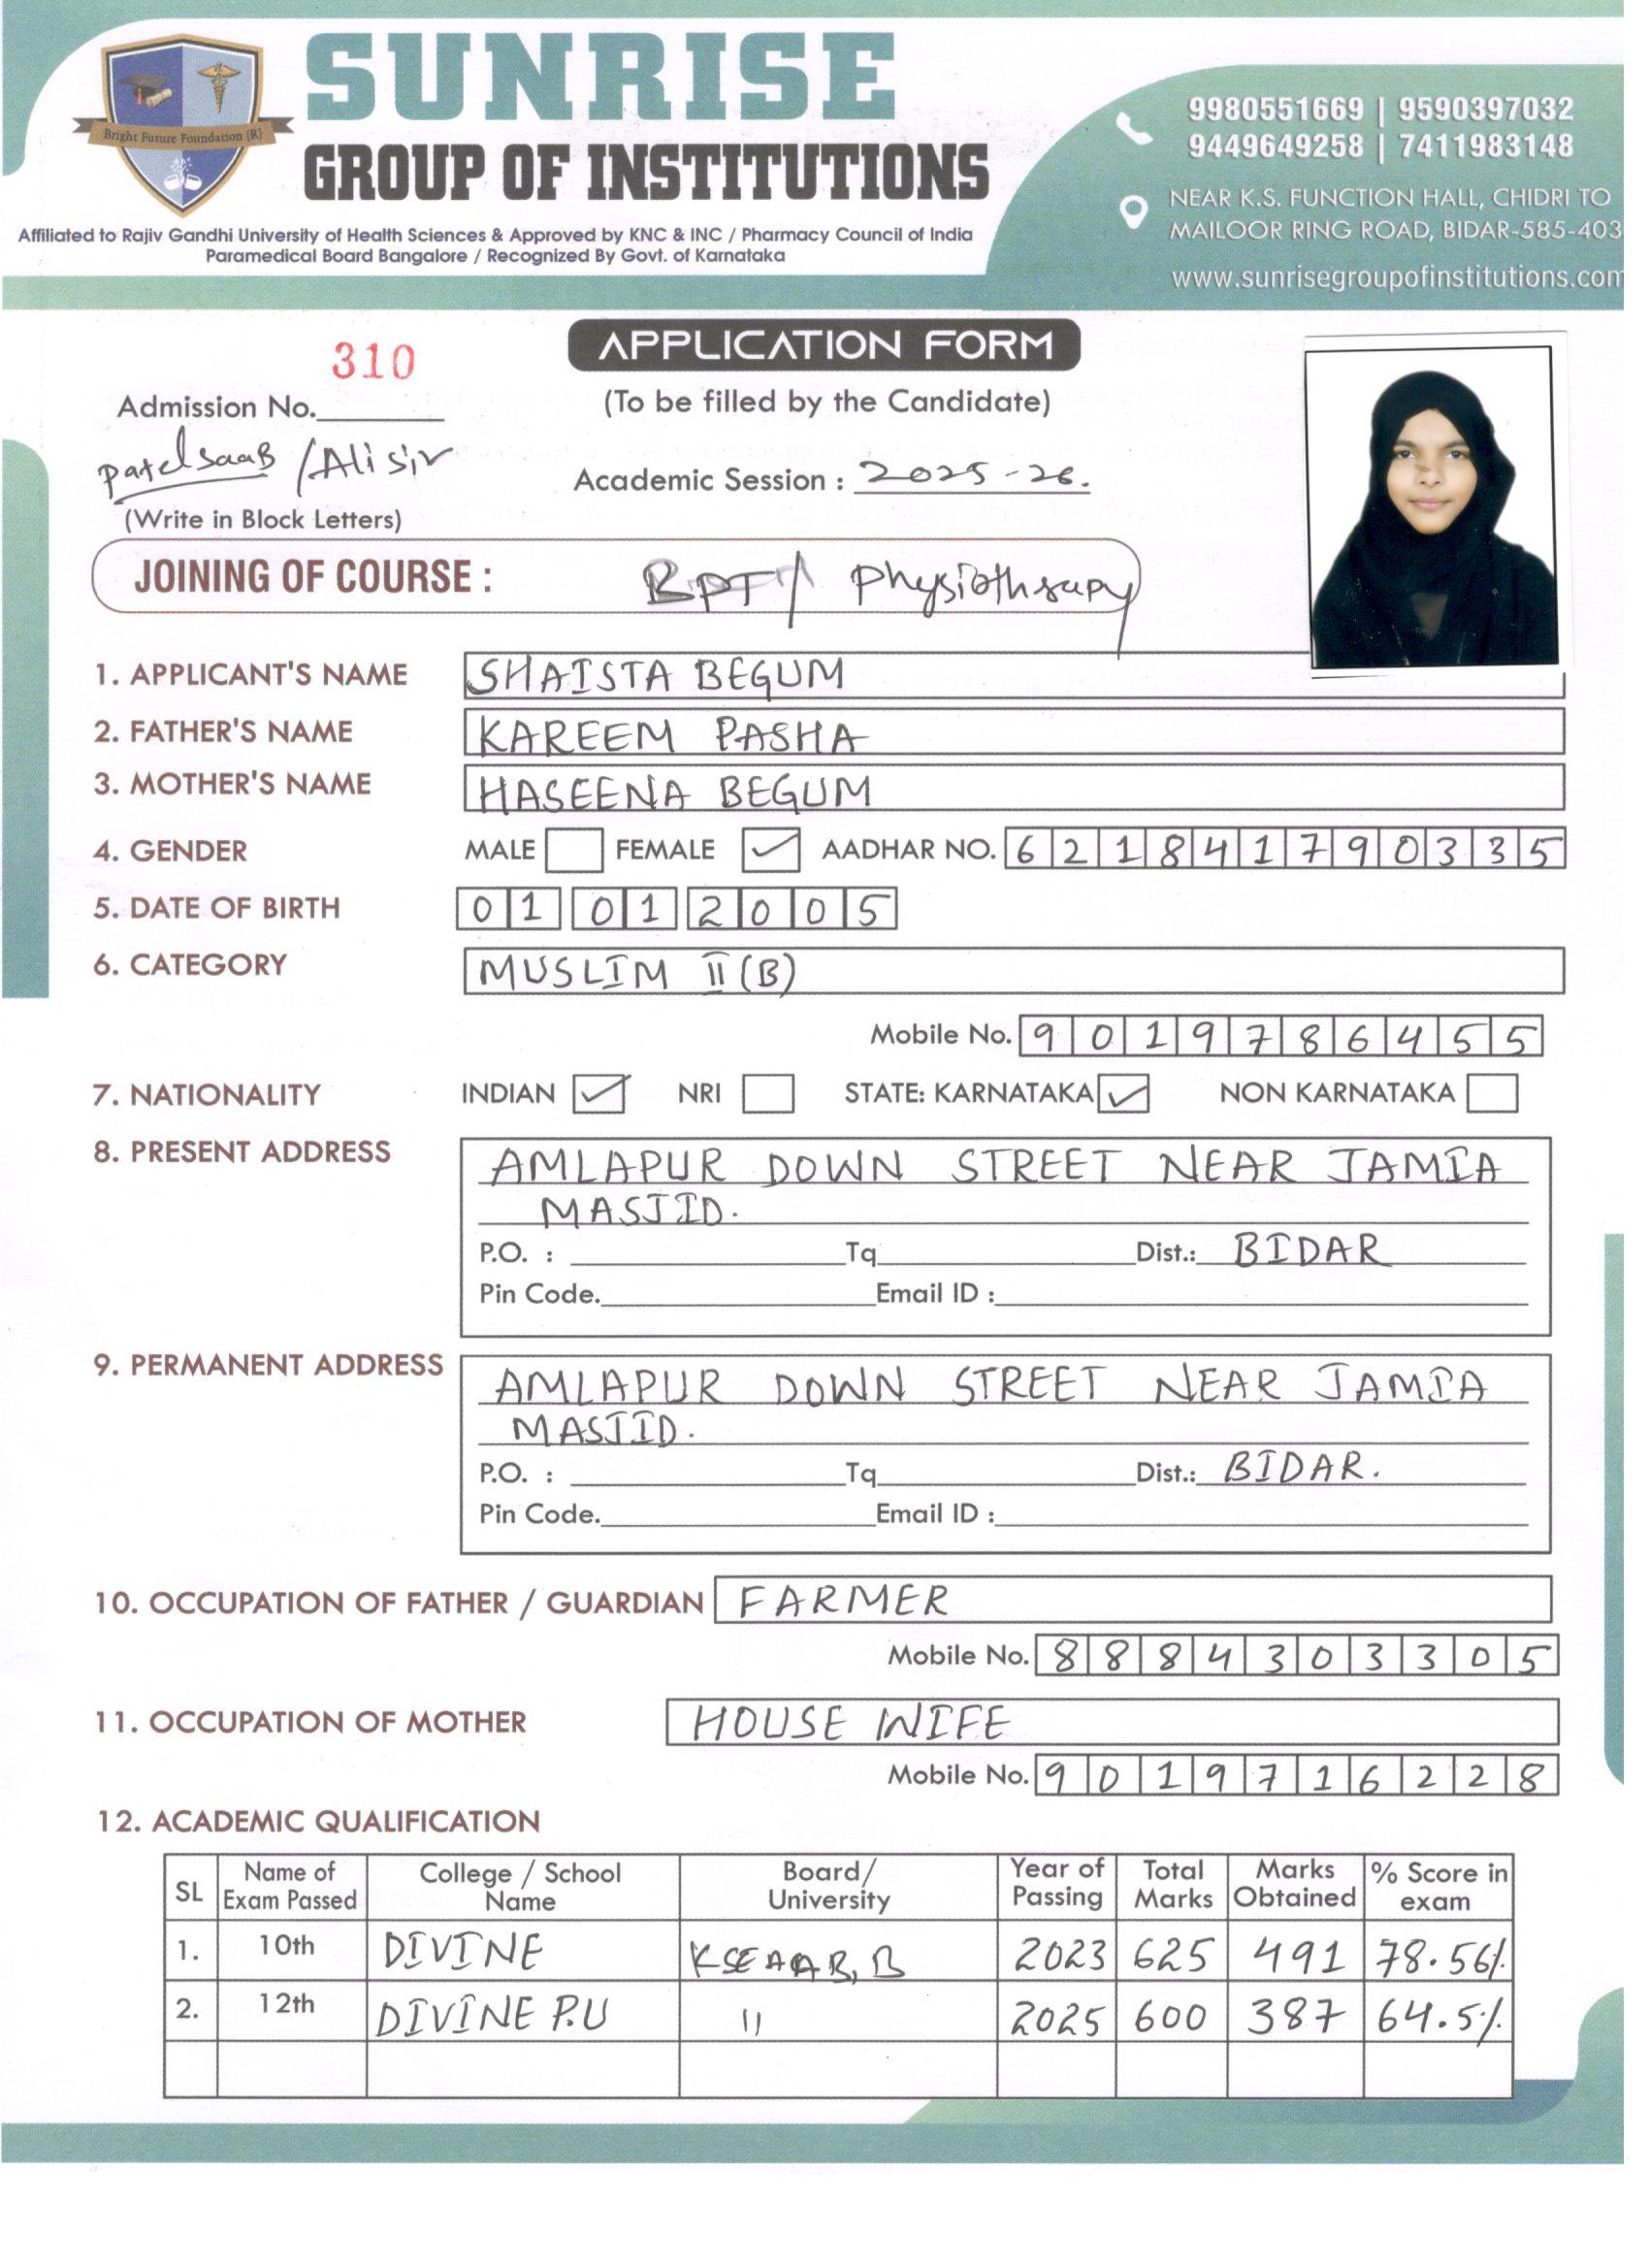 SUNRISE
GROUP OF INSTITUTIONS
Bright Future Foundation (R)
Affiliated to Rajiv Gandhi University of Health Sciences & Approved by KNC & INC / Pharmacy Council of India
Paramedical Board Bangalore / Recognized By Govt. of Karnataka
9980551669 | 9590397032
9449649258 | 7411983148
NEAR K.S. FUNCTION HALL, CHIDRI TO
MAILOOR RING ROAD, BIDAR-585-403
www.sunrisegroupofinstitutions.com
APPLICATION FORM
(To be filled by the Candidate)
310
Admission No.
Patel SaaB / Ali sir
Academic Session : 2025-26.
(Write in Block Letters)
JOINING OF COURSE : BPT / Physiotherapy
1. APPLICANT'S NAME SHAISTA BEGUM
2. FATHER'S NAME KAREEM PASHA
3. MOTHER'S NAME HASEENA BEGUM
4. GENDER MALE FEMALE ✓ AADHAR NO. 621841790335
5. DATE OF BIRTH 01 01 2005
6. CATEGORY MUSLIM II (B)
Mobile No. 9019786455
7. NATIONALITY INDIAN ✓ NRI STATE: KARNATAKA ✓ NON KARNATAKA
8. PRESENT ADDRESS AMLAPUR DOWN STREET NEAR JAMIA
MASJID.
P.O. : Tq Dist.: BIDAR
Pin Code. Email ID :
9. PERMANENT ADDRESS AMLAPUR DOWN STREET NEAR JAMIA
MASJID.
P.O. : Tq Dist.: BIDAR.
Pin Code. Email ID :
10. OCCUPATION OF FATHER / GUARDIAN FARMER
Mobile No. 8884303305
11. OCCUPATION OF MOTHER HOUSE WIFE
Mobile No. 9019716228
12. ACADEMIC QUALIFICATION
SL Name of Exam Passed College / School Name Board/ University Year of Passing Total Marks Marks Obtained % Score in exam
1. 10th DIVINE KSEAAB, B 2023 625 491 78.56%
2. 12th DIVINE P.U 11 2025 600 387 64.5%